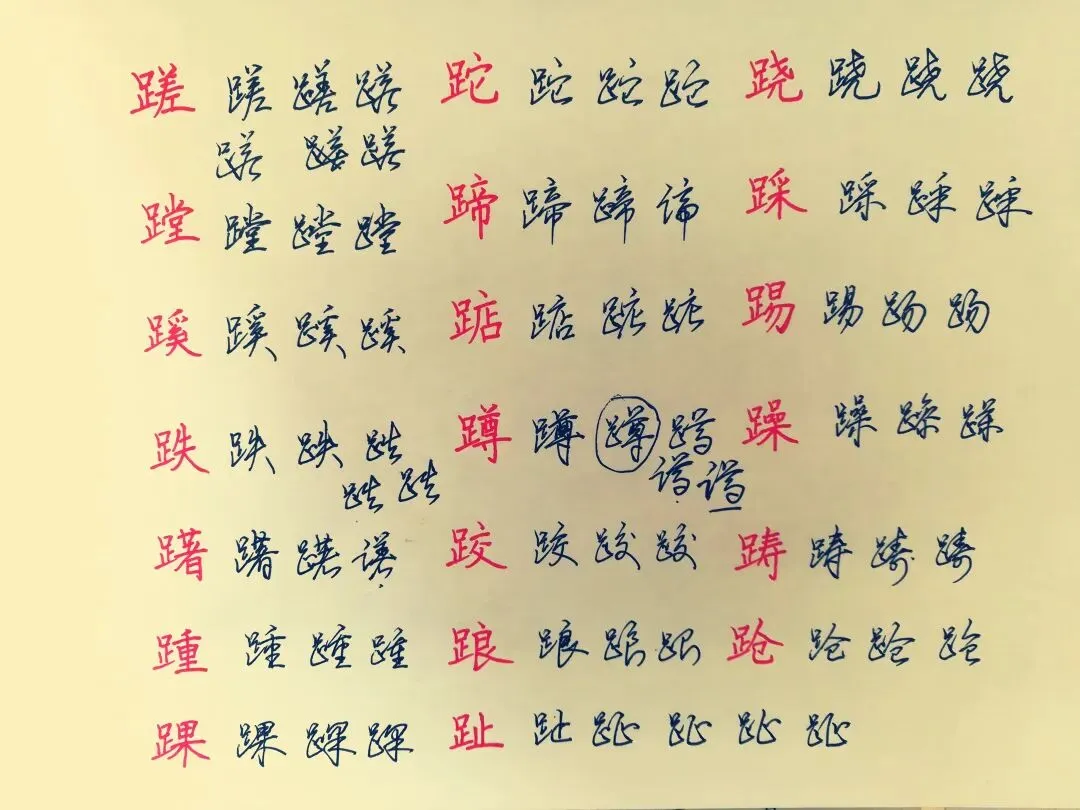 蹉 蹉 蹉 蹉 跎 跎 跎 跎 跷 跷 跷 跷
蹉 蹉 蹉
蹚 蹚 蹚 蹚 蹄 蹄 蹄 蹄 踩 踩 踩 踩
蹊 蹊 蹊 蹊 踮 踮 踮 踮 踢 踢 踢 踢
跌 跌 跌 跌 蹲 蹲 蹲 蹲 躁 躁 躁 躁
跌 跌 蹲 蹲
躇 躇 躇 躇 跤 跤 跤 跤 踌 踌 踌 踌
踵 踵 踵 踵 踉 踉 踉 踉 跄 跄 跄 跄
踝 踝 踝 踝 趾 趾 趾 趾 趾 趾